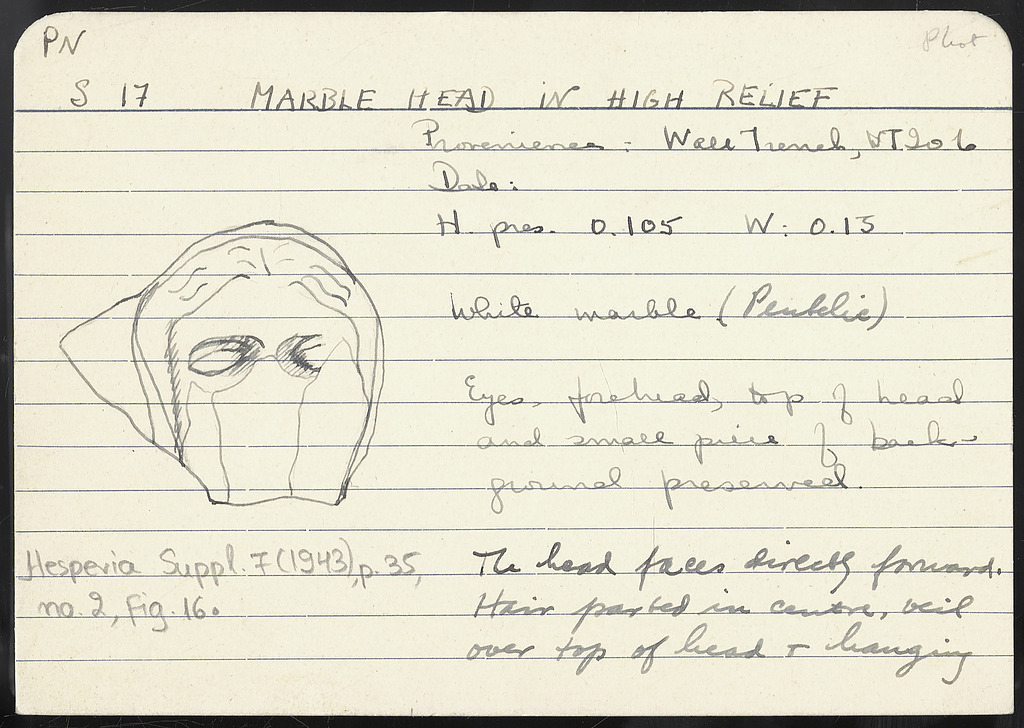 PN
Phot
S 17 MARBLE HEAD IN HIGH RELIEF
Provenience : Wall Trench, WT206
Date:
H. pres. 0.105 W: 0.15
White marble (Pentelic)
Eyes, forehead, top of head
and small piece of back-
ground preserved.
The head faces directly forward.
Hair parted in centre, veil
over top of head + hanging
Hesperia Suppl. 7 (1943), p. 35,
no. 2, fig. 16.